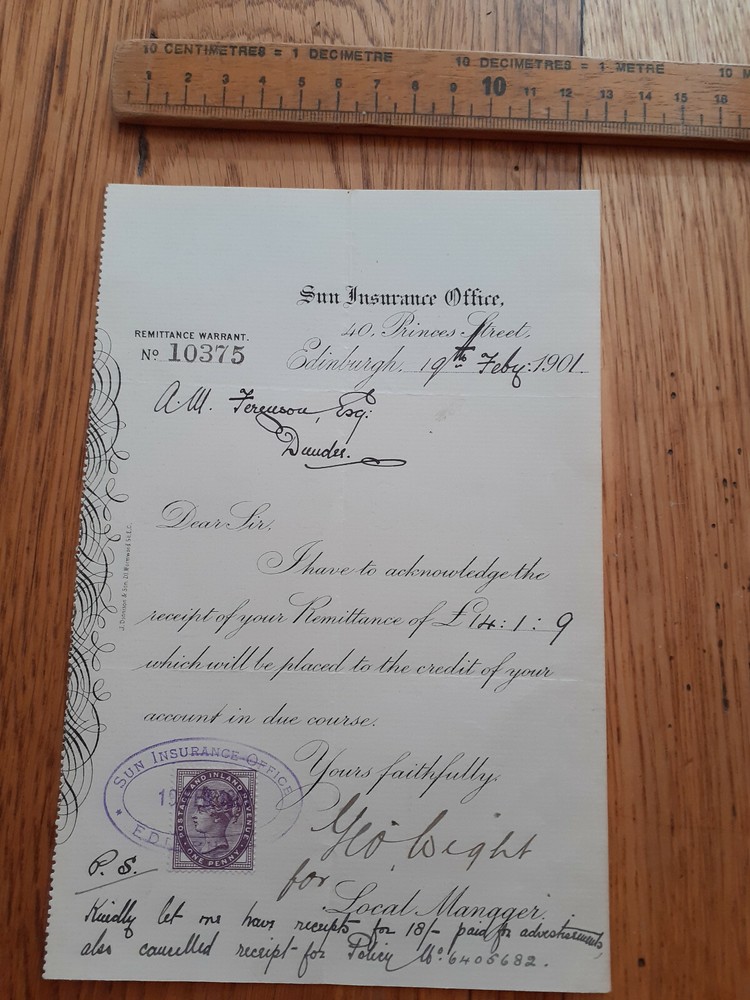 10 CENTIMETRES = 1 DECIMETRE 10 DECIMETRES = 1 METRE 10 M
1 2 3 4 5 6 7 8 9 10 11 12 13 14 15 18
Sun Insurance Office,
40, Princes Street,
REMITTANCE WARRANT.
No 10375
Edinburgh, 19th Feby. 1901.
A. M. Ferguson, Esq:
Dundee.
Dear Sir,
I have to acknowledge the
receipt of your Remittance of £14:1:9
which will be placed to the credit of your
account in due course.
Yours faithfully,
SUN INSURANCE OFFICE
19
POSTAGE AND INLAND REVENUE
ONE PENNY
Geo Wight
for Local Manager.
P.S.
Kindly let me have receipts for 18/- paid for advertisements,
also cancelled receipt for Policy No. 6405682.